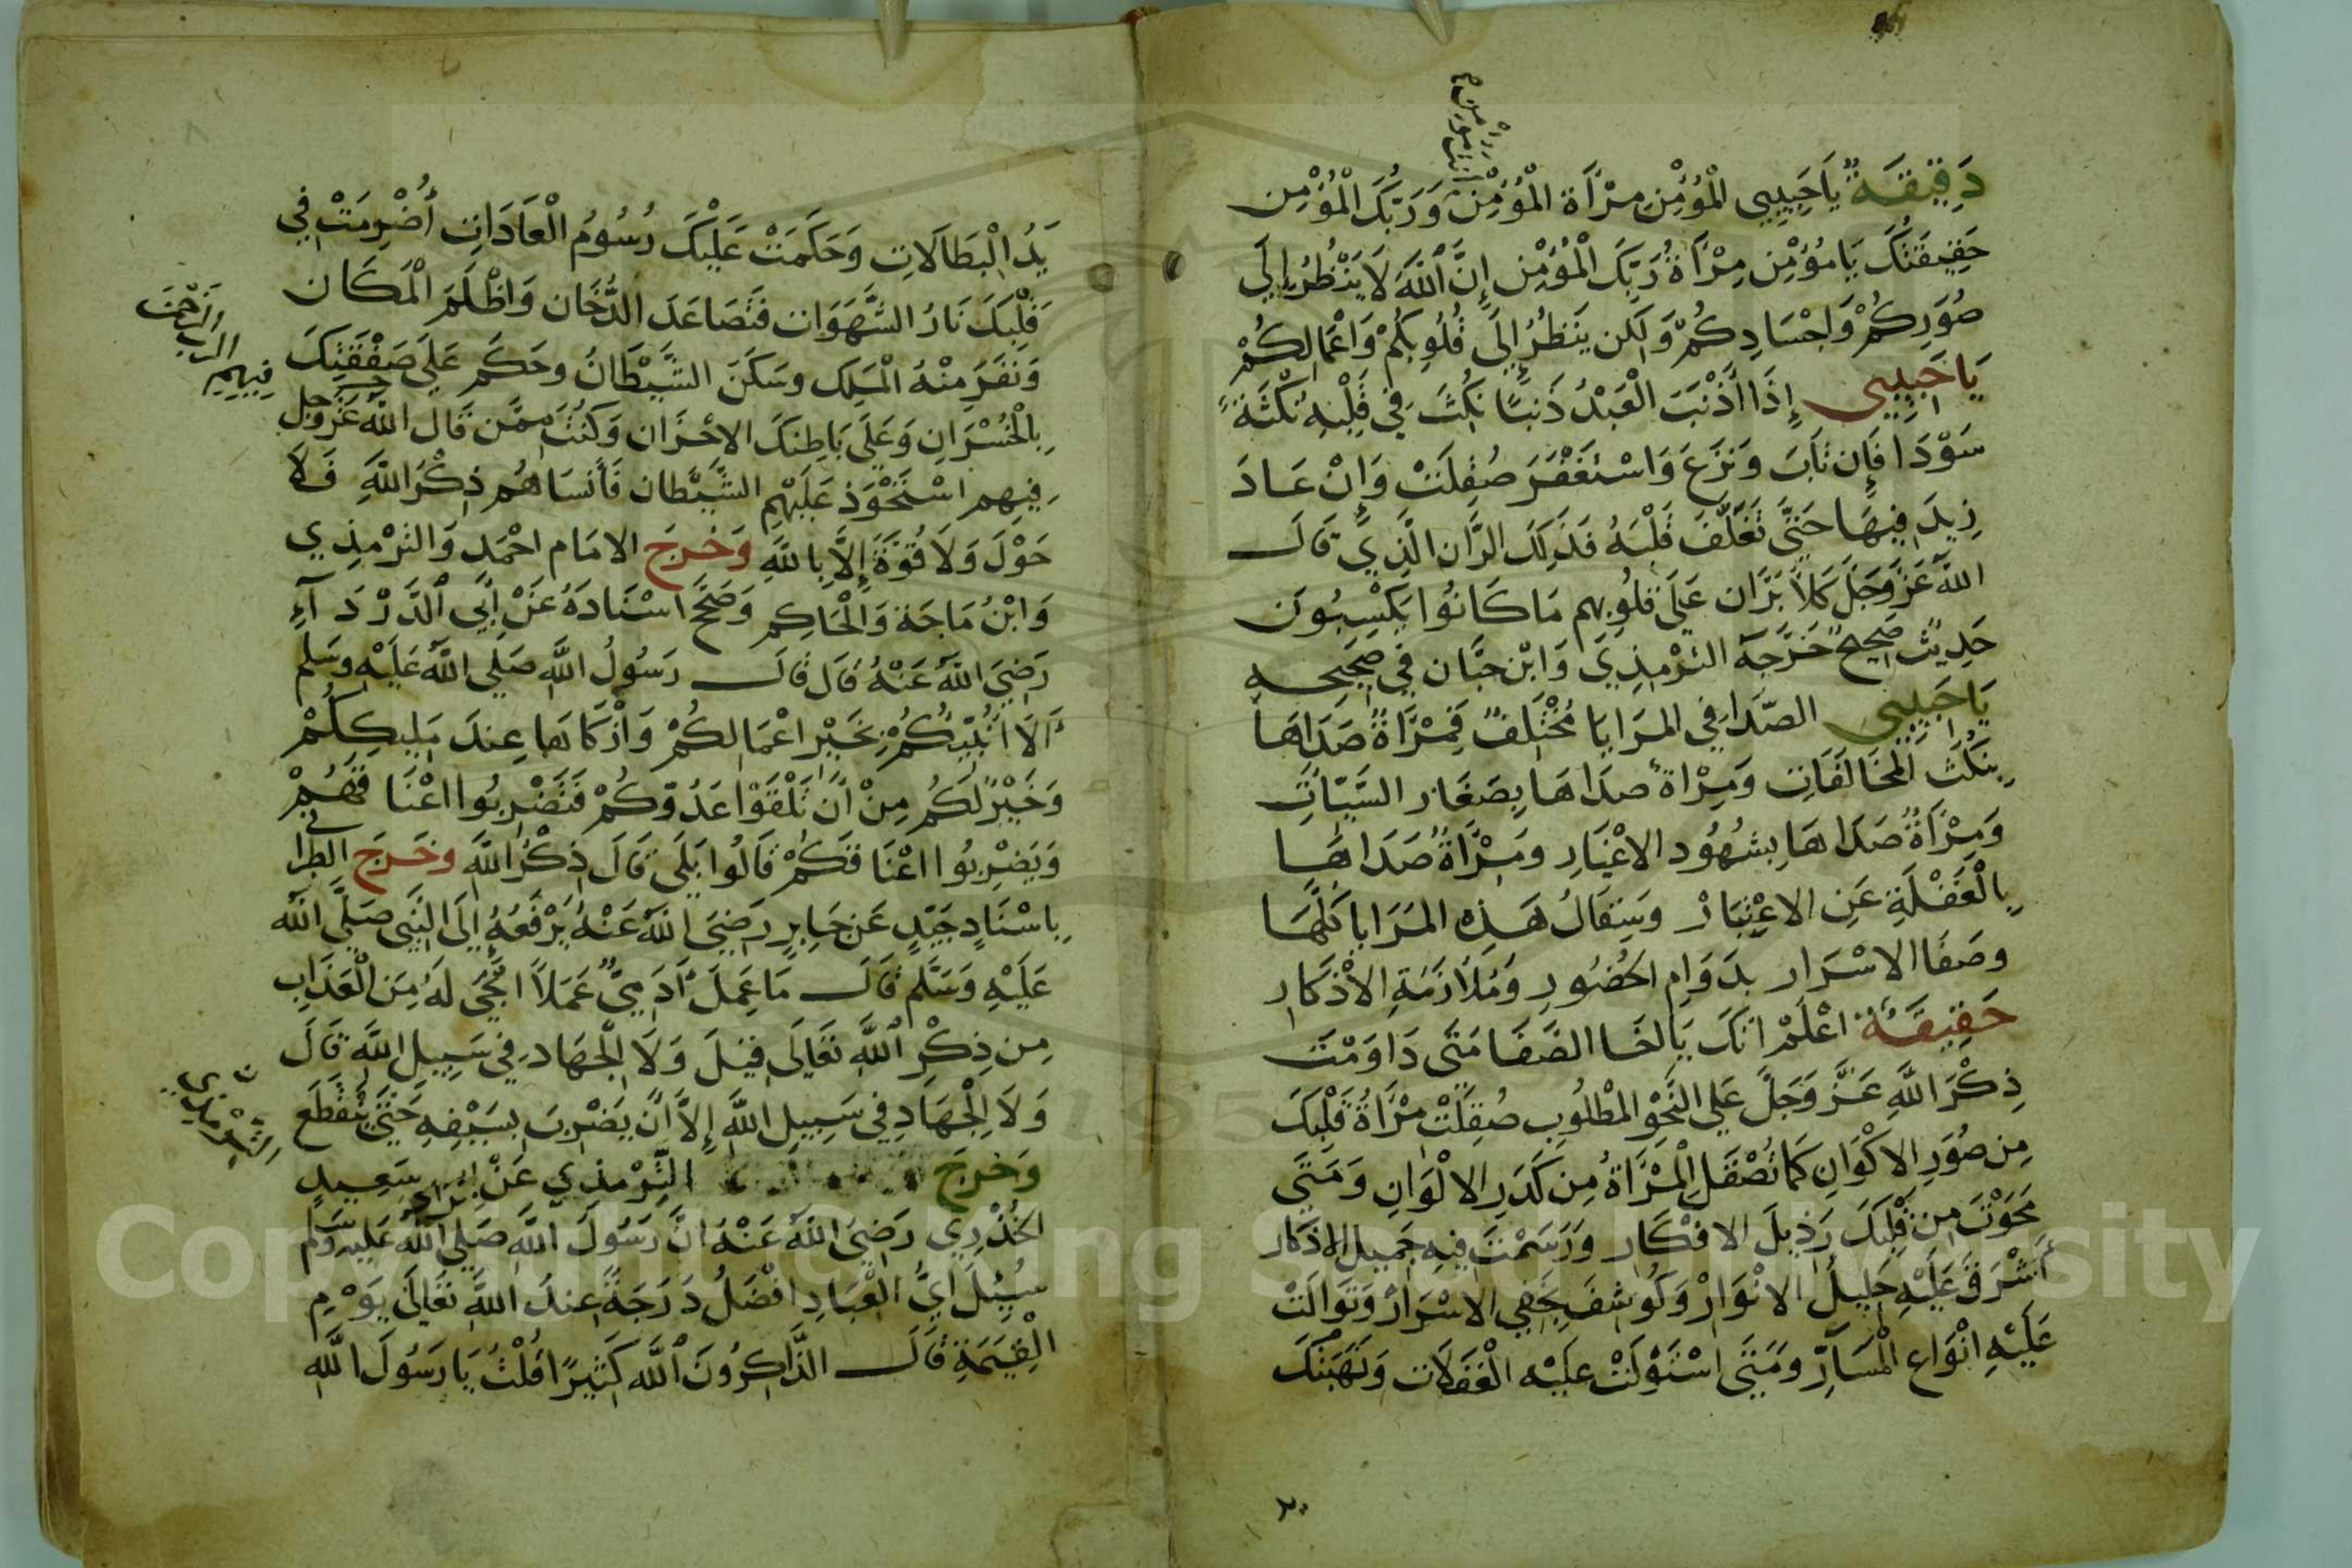 دَقِيقَةٌ يَا حَبِيبِي الْمُؤْمِن مِرْآة الْمُؤْمِنْ وَرَبُّكَ الْمُؤْمِن
حَقِيقَتُكَ يَا مُؤْمِن مِرْآةُ رَبِّكَ الْمُؤْمِن إِنَّ اللَّهَ لَا يَنْظُرُ إِلَى
صُوَرِكُمْ وَاجْسَادِكُمْ وَلَكِن يَنظُرُ إِلَى قُلُوبِكُمْ وَاعْمَالِكُمْ
يَا حَبِيبِي إِذَا أَذْنَبَ الْعَبْدُ ذَنبًا نُكِثَ فِي قَلْبِهِ نُكْثَةً
سَوْدَا فَإِن تَابَ وَنَزَعَ وَاسْتَغْفَرَ صُقِلَتْ وَإِنْ عَادَ
زِيدَ فِيهَا حَتَّى تَغَلَّفَ قَلْبَهُ فَذَلِكَ الرَّان الَّذِي قَالَ
اللَّه عَزَّ وَجَلَّ كَلَّا بَل رَّان عَلَى قُلُوبِهِم مَا كَانُوا يَكْسِبُونَ
حَدِيثٌ صَحِيحٌ خَرَّجَهُ التِّرْمِذِي وَابْن حِبَّان فِي صَحِيحِهِ
يَا حَبِيبِي الصَّدَا فِي الْمَرَايَا مُخْتَلِفٌ فَمِرْآةٌ صَدَاهَا
بِنَكْثِ الْمُخَالَفَاتِ وَمِرْاةٌ صَدَاهَا بِصَغَارِ السَّيِّاتِ
وَمِرْآةٌ صَدَاهَا بِشُهُودِ الاغْيَارِ وَمِرْآةٌ صَدَاهَا
بِالْغَفْلَةِ عَنِ الاعْتِبَارْ وَصِقَالُ هَذِهِ الْمَرَايَا كُلّهَا
وَصَفَا الاسْرَار بِدَوَامِ الْحُضُورِ وَمُلَازَمَةِ الاذْكَارِ
حَقِيقَةٌ اعْلَمْ انَّكَ يَا أَخَا الصَّفَا مَتَى دَاوَمْتَ
ذِكْرَ اللَّهِ عَزَّ وَجَلَّ عَلَى النَّحْوِ الْمَطْلُوبِ صُقِلَتْ مِرْآةُ قَلْبِكَ
مِن صُوَرِ الاكْوَانِ كَمَا تُصْقَلُ الْمِرْآةُ مِن كَدَرِ الالْوَانِ وَمَتَى
مَحَوْتَ مِن قَلْبِكَ رَذِيلَ الافْكَارِ وَرَسَمْتَ فِيهِ جَمِيلَ الاذْكَار
أَشْرَقَ عَلَيْهِ جَلِيلُ الانْوَارْ وَكُوشِفَ بِخَفِي الاسْرَارْ وَتَوَالَتْ
عَلَيْهِ انْوَاع الْمَسَارِّ وَمَتَى اسْتَوْلَتْ عَلَيْهِ الْغَفَلَات وَنَهَبَتْكَ
يَدُ الْبَطَالَاتِ وَحَكَمَتْ عَلَيْكَ رُسُومُ الْعَادَاتِ أُضْرِمَتْ فِي
قَلْبِكَ نَارُ الشَّهَوَات فَتَصَاعَدَ الدُّخَان وَاظْلَمَ الْمَكَان
وَنَفَرَ مِنْهُ الْمَلِك وَسَكَنَ الشَّيْطَانُ وَحَكَمَ عَلَى صَفْقَتِكَ
بِالْخُسْرَانِ وَعَلَى بَاطِنِكَ الاحْزَان وَكُنْتَ مِمَّن قَالَ اللَّه عَزَّ وَجَل
فِيهِم اسْتَحْوَذ عَلَيْهِم الشَّيْطَان فَأَنسَاهُم ذِكْرَ اللَّهِ فَلَا
حَوْلَ وَلَا قُوَّةَ إِلَّا بِاللَّهِ وَخَرجَ الامَام احْمَد وَالتِّرْمِذِي
وَابْنُ مَاجَة وَالْحَاكِم وَصَحَّحَ اسْنَادَهُ عَنْ أَبِي الدَّرْدَآءِ
رَضِيَ اللَّهُ عَنْهُ قَالَ قَالَ رَسُولُ اللَّهِ صَلَّى اللَّهُ عَلَيْهِ وَسَلَّم
أَلَا انَبِّيُكُمْ بِخَيْرِ اعْمَالِكُمْ وَأَزْكَاهَا عِندَ مَلِيكِكُمْ
وَخَيْرٌ لَكُم مِنْ أَن تَلْقَوْا عَدُوَّكُمْ فَتَضْرِبُوا اعْنَاقَهُمْ
وَيَضْرِبُوا اعْنَاقَكُمْ قَالُوا بَلَى قَالَ ذِكْرُ اللَّهِ وَخَرجَ الطبرانى
بِاسْنَادٍ جَيِّدٍ عَن جَابِرٍ رَضِيَ اللَّهُ عَنْهُ يَرْفَعُهُ إِلَى النَّبِي صَلَّى اللَّه
عَلَيْهِ وَسَلَّم قَالَ مَا عَمِلَ آدَمِيٌّ عَمَلاً انْجَى لَهُ مِنَ الْعَذَابِ
مِن ذِكْرِ اللَّهِ تَعَالَى قِيلَ وَلَا الْجِهَاد فِي سَبِيلِ اللَّهِ قَالَ
وَلَا الْجِهَادِ فِي سَبِيلِ اللَّهِ إِلَّا أَن يَضْرِبَ بِسَيْفِهِ حَتَّى يَنْقَطِع
وَخَرجَ التِّرْمِذِي عَنْ أبى سَعِيدٍ
الْخُدْرِي رَضِيَ اللَّهُ عَنْهُ انَّ رَسُولَ اللَّهِ صَلَّى اللَّهُ عَلَيْهِ وَسَلَّم
سُئِلَ أَيُّ الْعِبَادِ افْضَلُ دَرَجَةً عِندَ اللَّهِ تَعَالَى يَوْمِ
الْقِيَمَةِ قَالَ الذَّاكِرُونَ اللَّه كَثِيرًا قُلْتُ يَا رَسُولَ اللَّه
Copyright © King Saud University